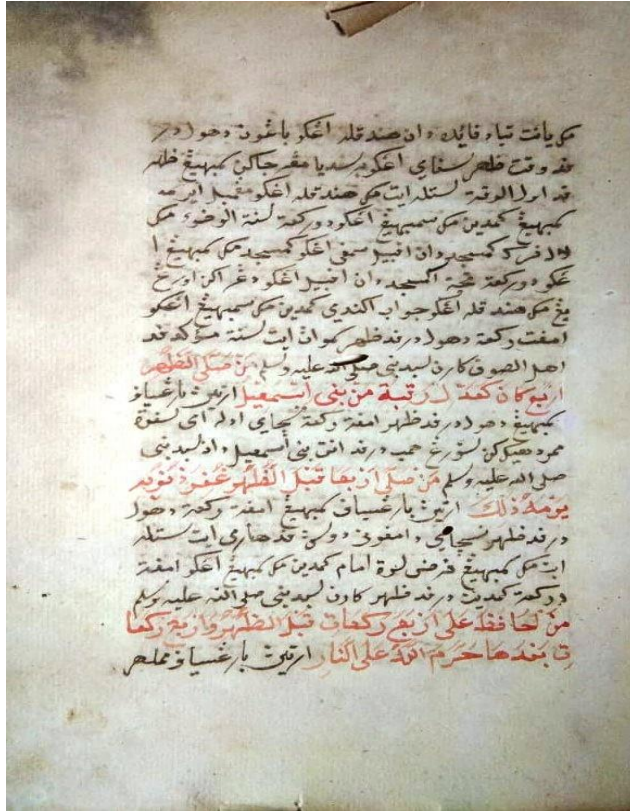 مك يائت تياد فائده دان هندقله اڠكو باڠون دهولو در
فد وقت ظهر سفاي اڠكو برسديا مڠرجاكن سمبهيڠ ظهر
فد اول الوقة ستله ايت مك هندقله اڠكو مڠمبل اير سمـ
سمبهيڠ كمدين مك سمبهيڠ اڠكو دو ركعة سنة الوضوء مك
فركي كمسجد دان افبيل سمفي اڠكو كمسجد مك سمبهيڠ ا
ڠكو دو ركعة تحية المسجد دان افبيل اڠكو دڠر اكن اورڠ بڠ
مك هندقله اڠكو جواب اكندي كمدين مك سمبهيڠ اڠكو
امفت ركعة دهولو درفد ظهر كران ايت سنة مؤكد فد
اهل الصوفي كارن سبد نبي صلى الله عليه وسلم مَنْ صَلَّى الظُّهْر
اَرْبَعِ رَكْعَة كرَقَبَةٍ مِنْ بَنِى اِسْمَعِيل ارتيڽ بارڠسياف
سمبهيڠ دهولو درفد ظهر امفة ركعة نسچاي اداله اي سفرة
ممرديهكاكن سئورڠ همب درفد انق بني اسمعيل دان سبد نبي
صلى الله عليه وسلم مَنْ صَلَّى اَرْبَعًا قَبْلَ الظُّهْرِ غُفِرَ ذُنُوبه
يَوْمَهُ ذٰلِكَ ارتيڽ بارڠسياف سمبهيڠ امفة ركعة دهولو
درفد ظهر نسچاي دامفوني دوساڽ فد هاري ايت ستله
ايت مك سمبهيڠ فرض سرة امام كمدين مك سمبهيڠ اڠكو امفة
ركعة كمدين درفد ظهر كارن سبد نبي صلى الله عليه وسلم
مَنْ حَافَظَ عَلَى اَرْبَعِ رَكَعَاتٍ قَبْلَ الظُّهْرِ وَاَرْبَعِ رَكَعَا
تٍ بَعْدَهَا حَرَّمَ اللهُ عَلَى النَّارِ ارتيڽ بارڠسياف مملهر